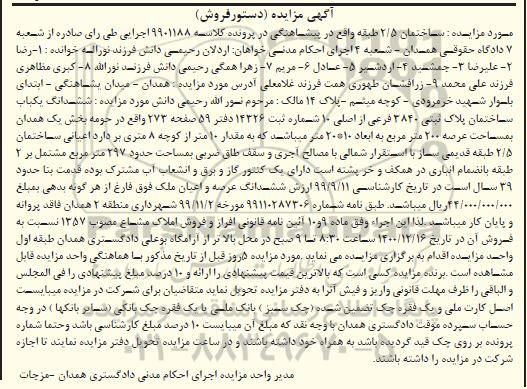 آگهی مزایده (دستورفروش)
مورد مزایده : ساختمان ۲/۵ طبقه واقع در پیشاهنگی در پرونده کلاسه ۹۹۰۱۱۸۸ اجرایی طی رای صادره از شعبه
۷ دادگاه حقوقی همدان - شعبه ۴ اجرای احکام مدنی خواهان: اردلان رحیمی دانش فرزند نوراله خوانده : ۱-رضا
۲- علیرضا ۳- جمشید ۴- اردشیر ۵- عادل ۶- مریم ۷- زهرا همگی رحیمی دانش فرزند نورالله ۸- کبری مظاهری
فرزند علی محمد ۹- زرافشان طهوری همت فرزند غلامعلی آدرس مورد مزایده : همدان - میدان پیشاهنگی - ابتدای
بلوار شهید خرمرودی - کوچه میثم -پلاک ۱۴ مالک : مرحوم نور الله رحیمی دانش مورد مزایده : ششدانگ یکباب
ساختمان پلاک ثبتی ۳۸۴۰ فرعی از اصلی ۱۰ شماره ثبت ۱۴۳۲۶ دفتر ۵۹ صفحه ۲۷۳ واقع در حومه بخش یک همدان
بمساحت عرصه ۲۰۰ متر مربع به ابعاد ۱۰*۲۰ متر میباشد که به مقدار ۱۰ متر از کوچه ۸ متری بر دارد اعیانی ساختمان
۲/۵ طبقه قدیمی ساز با استقرار شمالی با مصالح آجری و سقف طاق ضربی بمساحت حدود ۲۹۷ متر مربع مشتمل بر ۲
طبقه بانضمام انباری در همکف و خر پشته است دارای یک کنتور گاز و برق و انشعاب آب مشترک بوده قدمت بنا حدود
۳۹ سال است در تاریخ کارشناسی ۹۹/۹/۱۱ ارزش ششدانگ عرصه و اعیان ملک فوق فارغ از هر گونه بدهی بمبلغ
۴۴/۰۰۰/۰۰۰/۰۰۰ریال میباشد. طبق نامه شماره ۹۹۱۱۰۲۸۷۳۰۶ مورخه ۹۹/۱۱/۲ شهرداری منطقه ۲ همدان فاقد پروانه
و پایان کار میباشد .لذا این اجراء وفق ماده ۹و۱۰ آئین نامه قانونی افراز و فروش املاک مشاع مصوب ۱۳۵۷ نسبت به
فروش آن در تاریخ ۱۴۰۰/۱۲/۱۶ ساعت ۸:۳۰ تا ۹ صبح در محل بالا تر از آرامگاه بوعلی دادگستری همدان طبقه اول
واحد مزایده اقدام به برگزاری مزایده می نماید .مورد مزایده ۵روز قبل از تاریخ مذکور با هماهنگی واحد مزایده قابل
مشاهده است .برنده مزایده کسی است که بالاترین قیمت پیشنهادی را ارائه و ۱۰ درصد مبلغ پیشنهادی را فی المجلس
و الباقی را ظرف مهلت قانونی واریز و فیش آنرا به دفتر مزایده تحویل نماید متقاضیان برای شرکت در مزایده میبایست
اصل کارت ملی و یک فقره چک تضمین شده (چک سبز ) بانک ملی یا یک فقره چک بانکی (سایر بانکها ) در وجه
حساب سپرده موقت دادگستری همدان با وجه نقد که مبلغ آن میبایست ۱۰ درصد مبلغ کارشناسی باشد وحتما شماره
پرونده بر روی چک قید گردیده باشد به همراه خود داشته باشند و در ساعت مزایده تحویل دفتر مزایده نمایند تا اجازه
شرکت در مزایده را داشته باشند.
مدیر واحد مزایده اجرای احکام مدنی دادگستری همدان -مزجات